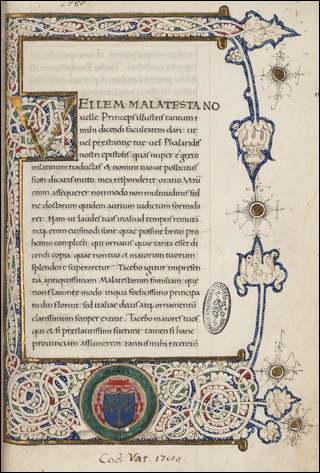 VELLEM MALATESTA NO
uelle Princeps illustris tantum
mihi dicendi facultatem dari: ut
uel prestantie tue: uel Phalaridis
nostri epistolis. quas nuper e greco
in latinum traduxi: & nomini tuo ut pollicitus
sum dicatas mitto. mea responderet oratio. Veru
enim assequerer non modo non multitudinis sed
ne doctorum quidem aurium iudicium formida
ret. Nam ut laudes tuas in aliud tempus remitta
neq; enim eiusmodi sunt. que possint breui pro
hemio complecti: qui ornatus. que tanta esset di
cendi copia. que non tuo & maiorum tuorum
splendore superaretur. Tacebo igitur in presen
tia antiquissimam Malatestarum familiam. que
non solum inte modo in qua foelicissimo principa
tu diu floruit: sed italie decus atq; ornamentu
clarissimum semper extitit. Tacebo maiores tuos
qui & si prestantissimi fuerunt tamen si hanc
prouinciam assumerem: tantus mihi recentiu
Cod. Vat.